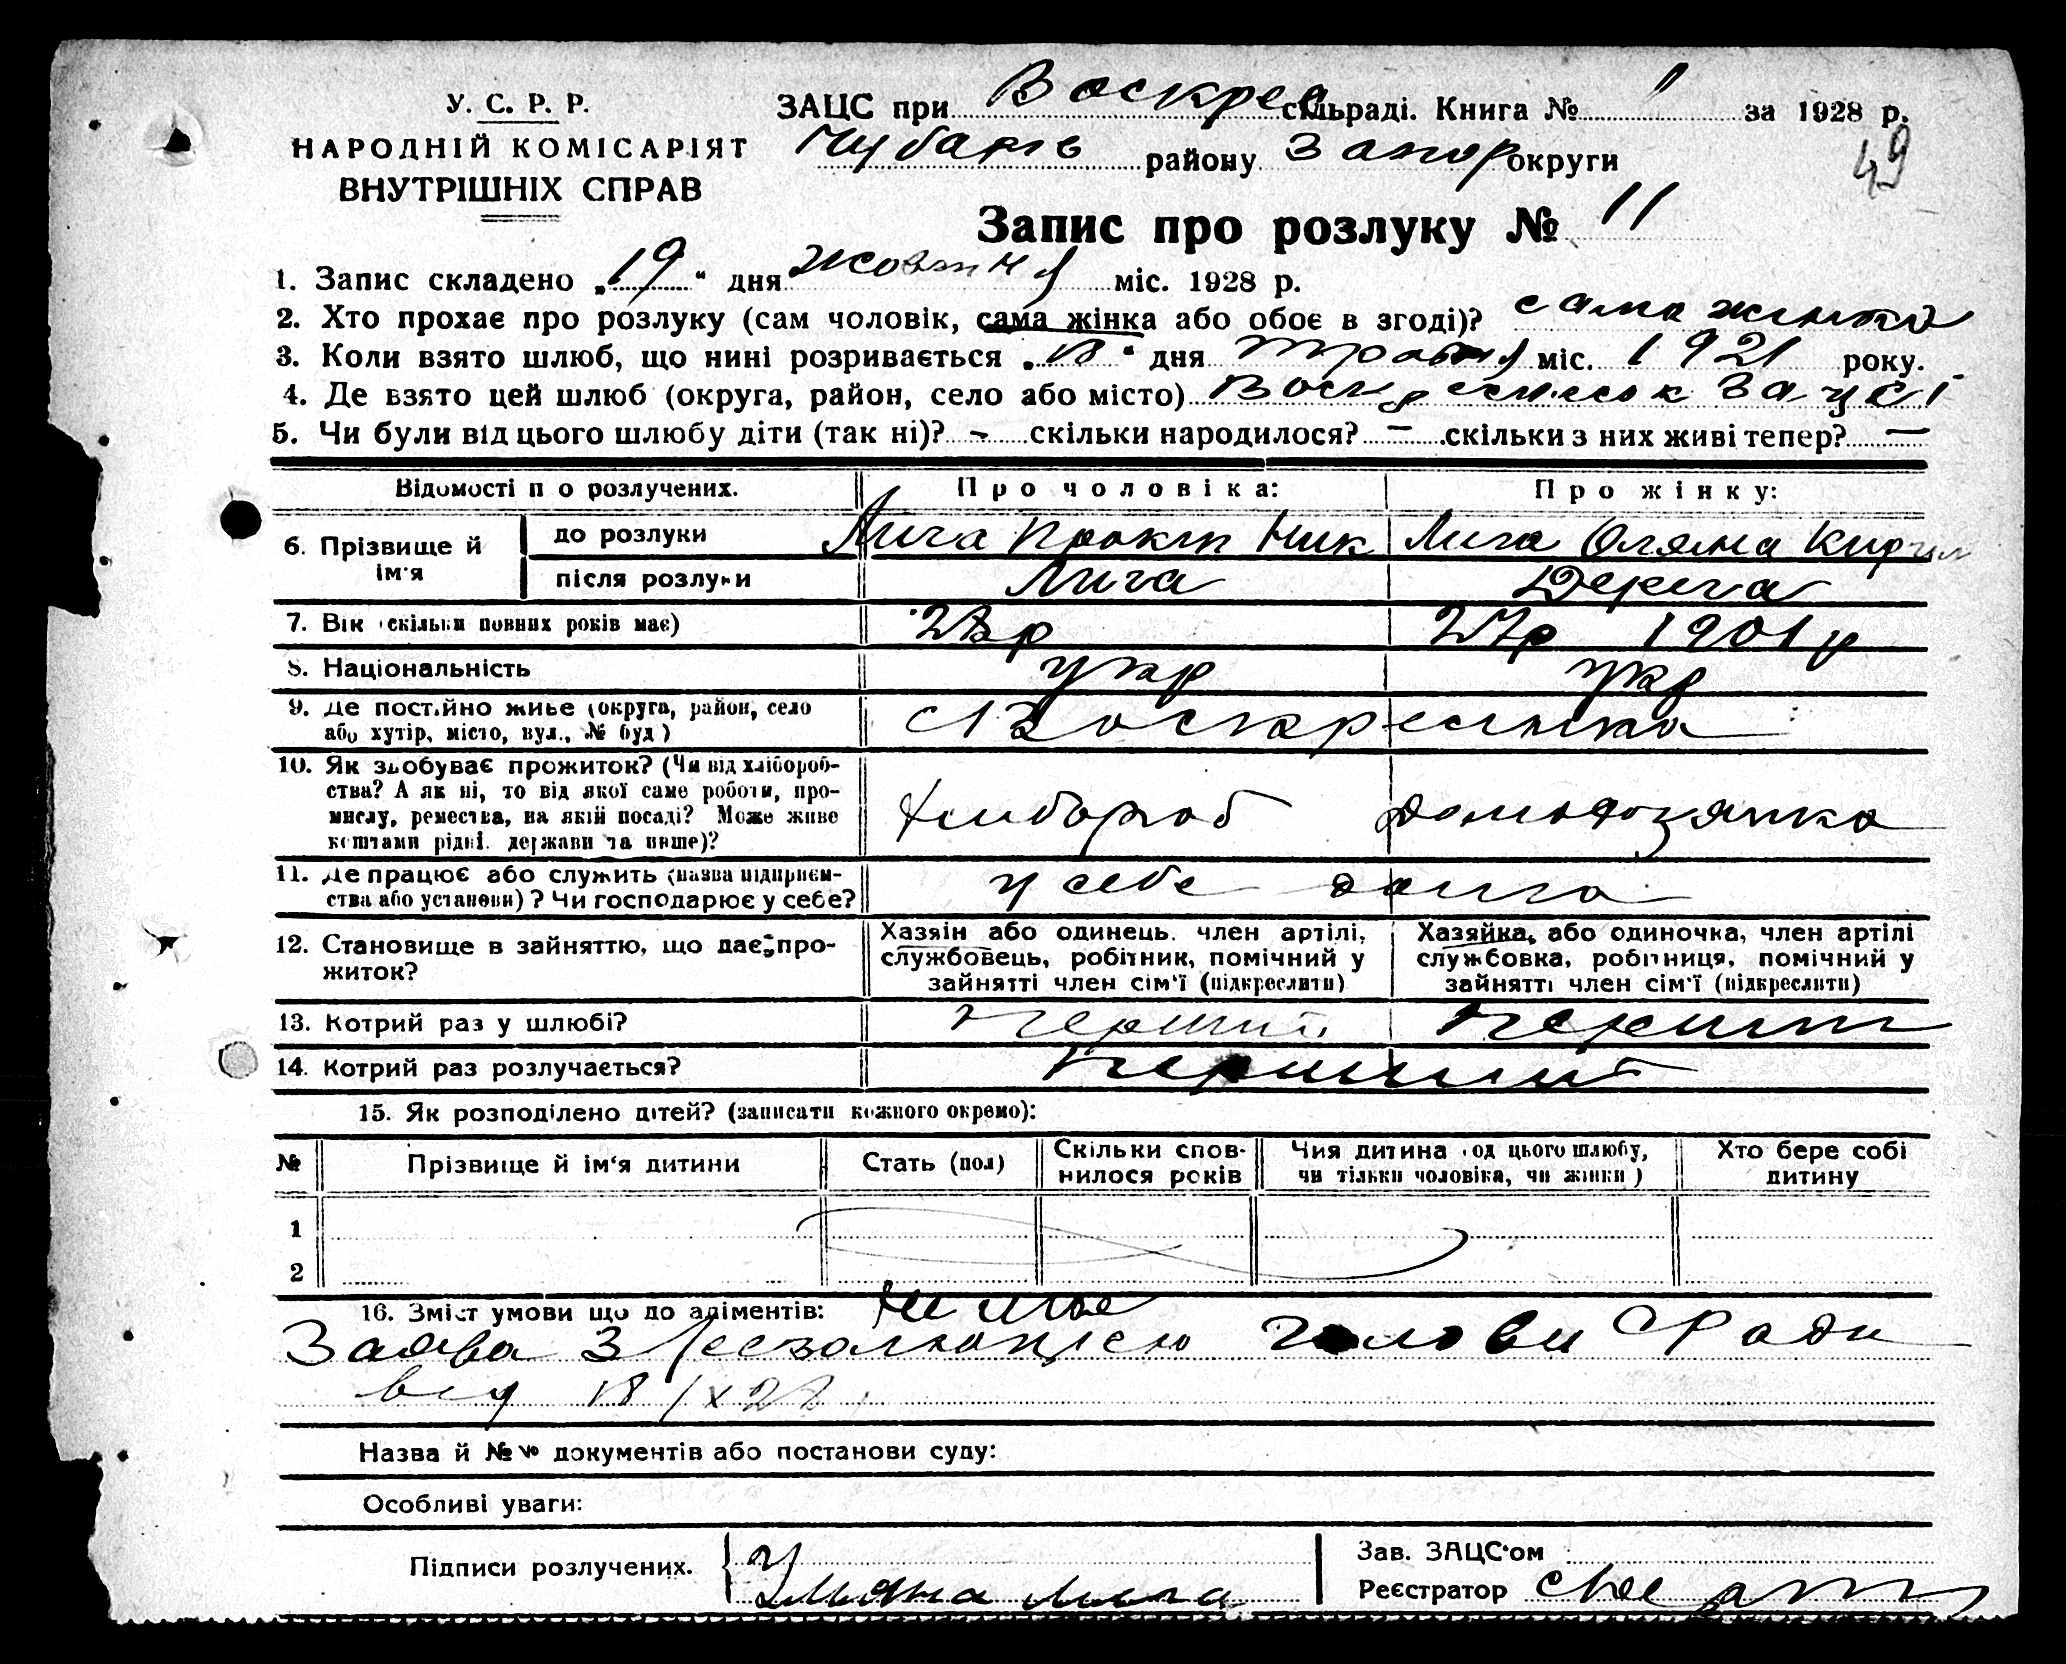 У. С. Р. Р.
НАРОДНІЙ КОМІСАРІЯТ
ВНУТРІШНІХ СПРАВ
ЗАЦС при Воскрес сільраді. Книга № 1 за 1928 р.
Чубарів району Запор округи
49
Запис про розлуку № 11
1. Запис складено „19“ дня жовтня міс. 1928 р.
2. Хто прохає про розлуку (сам чоловік, сама жінка або обоє в згоді)? сама жинка
3. Коли взято шлюб, що нині розривається „18“ дня травня міс. 1921 року.
4. Де взято цей шлюб (округа, район, село або місто) Воскресенськ Зацсі
5. Чи були від цього шлюбу діти (так ні)? - скільки народилося? — скільки з них живі тепер? —
Відомості п о розлучених. Про чоловіка: Про жінку:
6. Прізвище й ім'я до розлуки Лига Прокип Ник Лига Оляна Кирил
після розлуки Лига
7. Вік (скільки повних років має) 28р 27р 1901р
8. Національність укр укр
9. Де постійно живе (округа, район, село
або хутір, місто, вул., № буд) с Воскресенка
10. Як здобуває прожиток? (Чи від хлібороб-
ства? А як ні, то від якої саме роботи, про-
мислу, ремества, на якій посаді? Може живе
коштами рідні, держави та инше)? Хлибороб Домохозяйка
11. Де працює або служить (назва підприєм-
ства або установи)? Чи господарює у себе? у себе дома
12. Становище в зайняттю, що дає про-
житок?
Хазяін або одинець, член артілі,
службовець, робітник, помічний у
зайнятті член сім'ї (підкреслити)
Хазяйка, або одиночка, член артілі
службовка, робітниця, помічний у
зайнятті член сім'ї (підкреслити)
13. Котрий раз у шлюбі? перший перший
14. Котрий раз розлучається? перший
15. Як розподілено дітей? (записати кожного окремо):
№ Прізвище й ім'я дитини Стать (пол) Скільки спов-
нилося років Чия дитина (од цього шлюбу,
чи тільки чоловіка, чи жінки) Хто бере собі
дитину
1
2
16. Зміст умови що до аліментів: Ни має
Заява З Резолюцією голови С Ради
від 18/X 28
Назва й №№ документів або постанови суду:
Особливі уваги:
Підписи розлучених.
Уляна Лига
Зав. ЗАЦС'ом
Реєстратор